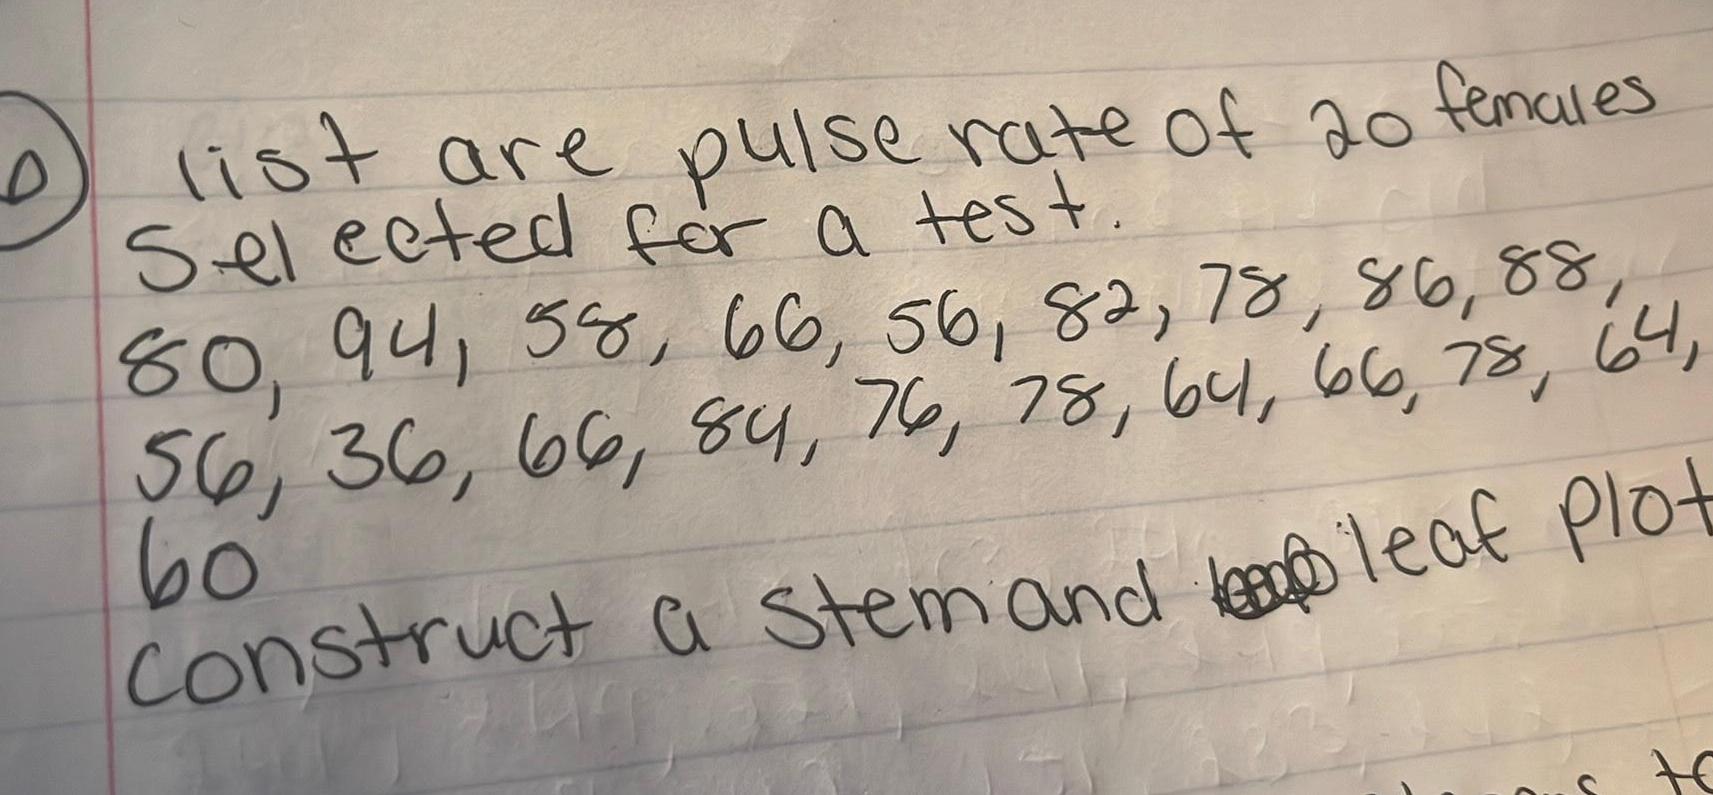 list are pulse rate of 20 females
selected for a test.
80, 94, 58, 66, 56, 82, 78, 86, 88,
56, 36, 66, 84, 76, 78, 64, 66, 78, 64,
60
construct a stem and leaf plot
to